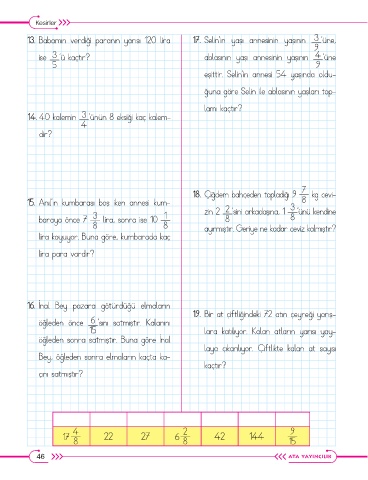 Kesirler
13. Babamın verdiği paranın yarısı 120 lira
ise 3/5 ü kaçtır?
14. 40 kalemin 3/4'ünün 8 eksiği kaç kalem-
dir?
15. Anıl'ın kumbarası boş iken annesi kum-
baraya önce 7 3/8 lira, sonra ise 10 1/8
lira koyuyor. Buna göre, kumbarada kaç
lira para vardır?
16. İnal Bey pazara götürdüğü elmaların
öğleden önce 6/15'sını satmıştır. Kalanını
öğleden sonra satmıştır. Buna göre İnal
Bey, öğleden sonra elmaların kaçta ka-
çını satmıştır?
17. Selin'in yaşı annesinin yaşının 3/9'üne,
ablasının yaşı annesinin yaşının 4/9'üne
eşittir. Selin'in annesi 54 yaşında oldu-
ğuna göre Selin ile ablasının yaşları top-
lamı kaçtır?
18. Çiğdem bahçeden topladığı 9 7/8 kg cevi-
zin 2 2/8'sini arkadaşına, 1 3/8'ünü kendine
ayırmıştır. Geriye ne kadar ceviz kalmıştır?
19. Bir at çiftliğindeki 72 atın çeyreği yarış-
lara katılıyor. Kalan atların yarısı yay-
laya çıkarılıyor. Çiftlikte kalan at sayısı
kaçtır?
17 4/8 22 27 6 2/8 42 144 9/15
46
ATA YAYINCILIK